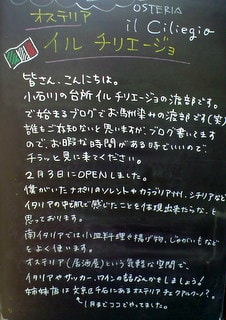 オステリア
OSTERIA
il Ciliegio
イル チリエージョ
皆さん、こんにちは。
小石川の台所イル チリエージョの渡部です。
で始まるブログでお馴染みの渡部です(笑)
誰もご存知ないと思いますが、ブログ書いてますので、
お暇な時間がある時でいいので、
チラッと見に来てください。
2月3日にOPENしました。
僕がいたナポリのソレントやカラブリア州、シチリアなど
イタリアの中で感じたことを体現出来たらな、と
思っております。
南イタリアでは小皿料理や揚げ物、じゃがいもなど
をよく使います。
オステリア(居酒屋)という気軽な空間で、
イタリアやサッカー、ワインの話なんかをしましょう!
姉妹店は文京区千石にあるオステリア
1月までココでやってました。